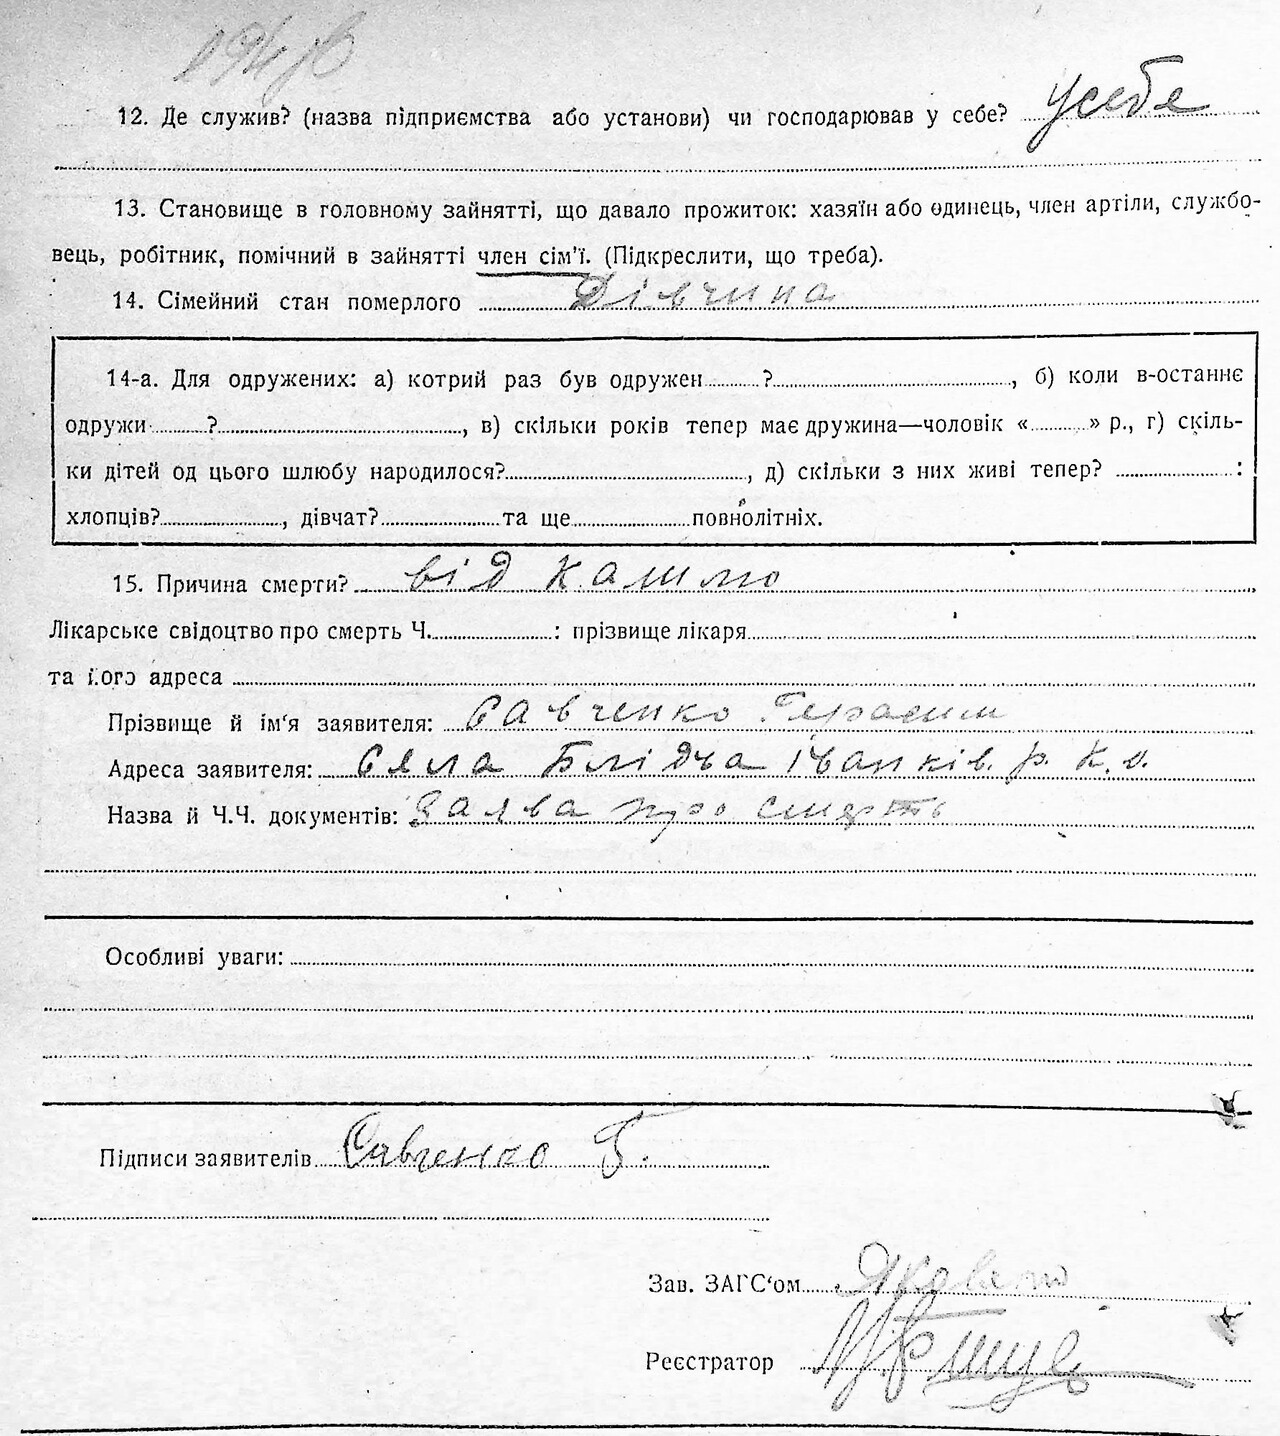 12. Де служив? (назва підприємства або установи) чи господарював у себе? усебе
13. Становище в головному зайнятті, що давало прожиток: хазяїн або одинець, член артіли, службо-
вець, робітник, помічний в зайнятті член сім'ї. (Підкреслити, що треба).
14. Сімейний стан померлого Дівчина
14-а. Для одружених: а) котрий раз був одружен ?, б) коли в-останнє
одружи ?, в) скільки років тепер має дружина—чоловік « » р., г) скіль-
ки дітей од цього шлюбу народилося?, д) скільки з них живі тепер? :
хлопців?, дівчат? та ще повнолітніх.
15. Причина смерти? від кашлю
Лікарське свідоцтво про смерть Ч. : прізвище лікаря
та його адреса
Прізвище й ім'я заявителя: Савченко Герасим
Адреса заявителя: Села Блідча Іванків. р. К. о.
Назва й Ч.Ч. документів: Заява про смерть
Особливі уваги:
Підписи заявителів Савченко Г.
Зав. ЗАГС'ом
Реєстратор